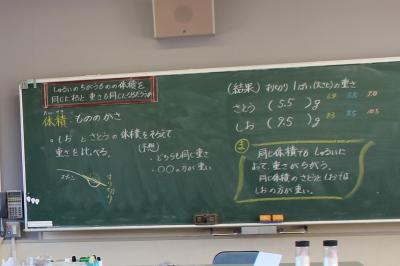 しゅるいのちがうものの体積を
同じにすると重さも同じになるだろうか
たいせき
体積:もののかさ
・しおとさとうの体積をそろえて
重さを比べる。
(予想)
・どちらも同じ重さ
・○○の方が重い
すり切り
(結果) すりきり1ぱい(大さじ)の重さ
さとう ( 5.5 )g
しお ( 9.5 )g
ま
同じ体積でもしゅるいに
よって重さがちがう。
同じ体積のさとうとしおでは
しおの方が重い。